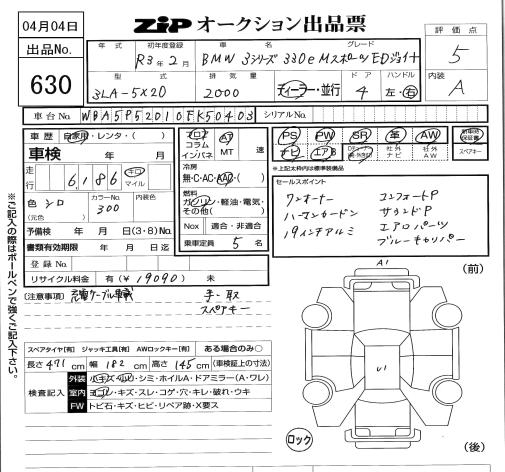 04月04日
ZIPオークション出品票
出品No.
630
年式 初年度登録 車名 グレード
R3年2月 BMW 3シリーズ 330e Mスポーツ EDジョイ+
型式 排気量 ドア ハンドル
3LA-5X20 2000 ディーラー・並行 4 左・右
評価点
5
内装
A
車台No. WBA5P52010FK50403 シリアルNo.
車歴 自家用・レンタ・( )
車検 年 月
走行 6,186 キロ マイル
色 シロ (元色) カラーNo. 300 内装色
予備検 年 月 日(3・8)No.
書類有効期限 年 月 日迄
登録No.
リサイクル料金 有(¥19090) 未
フロア コラム インパネ AT MT 速
冷房
無・C・AC・AAC・( )
燃料
ガソリン・軽油・電気・その他( )
Nox 適合・非適合
乗車定員 5 名
PS PW SR 革 AW 新車時保証書
ナビ エアB 社外ナビ 社外AW スペアキー
※上記太枠内は標準装備品
セールスポイント
ワンオーナー コンフォートP
ハーマンカードン サラウンドP
19インチアルミ エアロパーツ
ブルーキャリパー
(注意事項) 充電ケーブル車載 手・取
スペアキー
スペアタイヤ【有】 ジャッキ工具【有】 AWロックキー【有】 ある場合のみ○
長さ 471 cm 幅 182 cm 高さ 145 cm (車検証上の寸法)
検査記入
外装 小キズ・凹・シミ・ホイルA・ドアミラー(A・ワレ)
室内 ヨゴレ・キズ・スレ・コゲ・穴・キレ・破れ・ウキ
FW トビ石・キズ・ヒビ・リペア跡・X要ス
A1
(前)
U1
ロック
(後)
※ご記入の際はボールペンで強くご記入下さい。